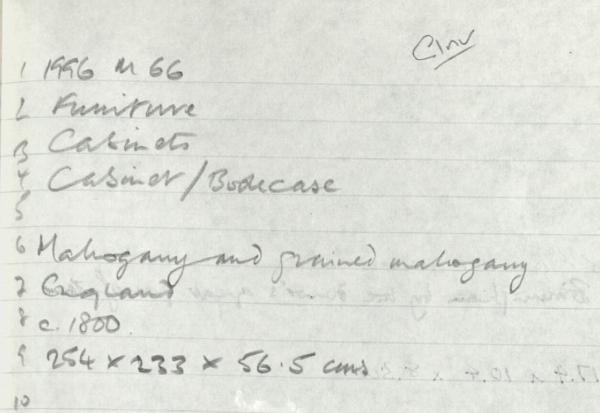 CInv
1 1996 M 66
2 Furniture
3 Cabinets
4 Cabinet/Bookcase
5
6 Mahogany and grained mahogany
7 England
8 c. 1800.
9 254 x 233 x 56.5 cms
10